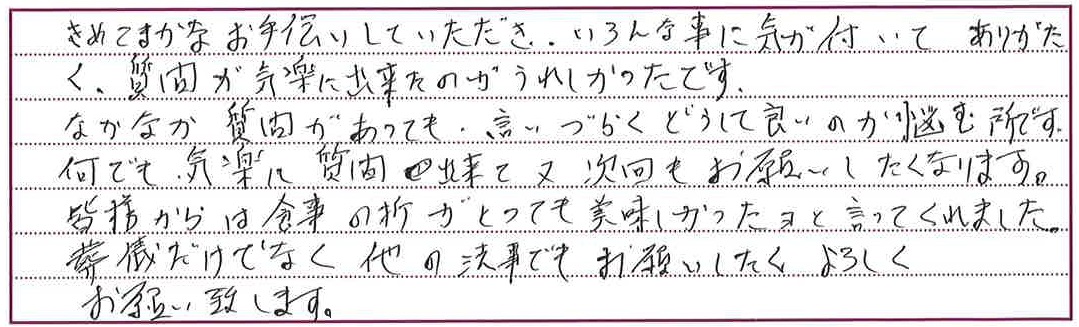 きめこまかなお手伝いしていただき、いろんな事に気が付いて ありがた
く、質問が気楽に出来たのがうれしかったです。
なかなか 質問があっても、言いづらくどうして良いのか悩む所です。
何でも、気楽に 質問出来て 又 次回もお願いしたくなります。
皆様からは食事の折がとっても美味しかったヨと言ってくれました。
葬儀だけでなく 他の法事でもお願いしたく よろしく
お願い致します。